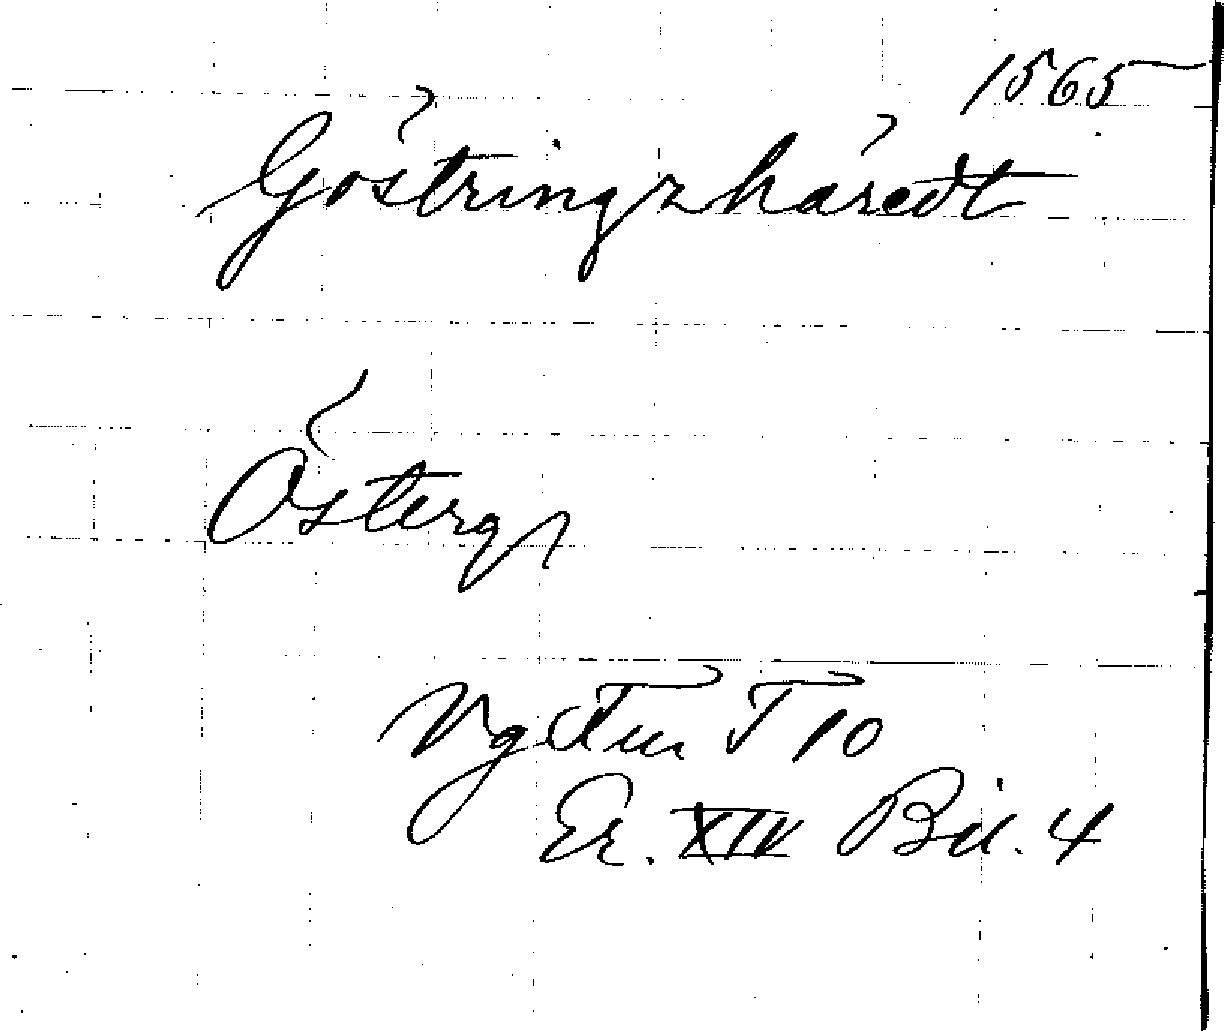 1565
Göstringzhäredt
Österg
Vg Fur T 10
Er. XIV Bil. 4